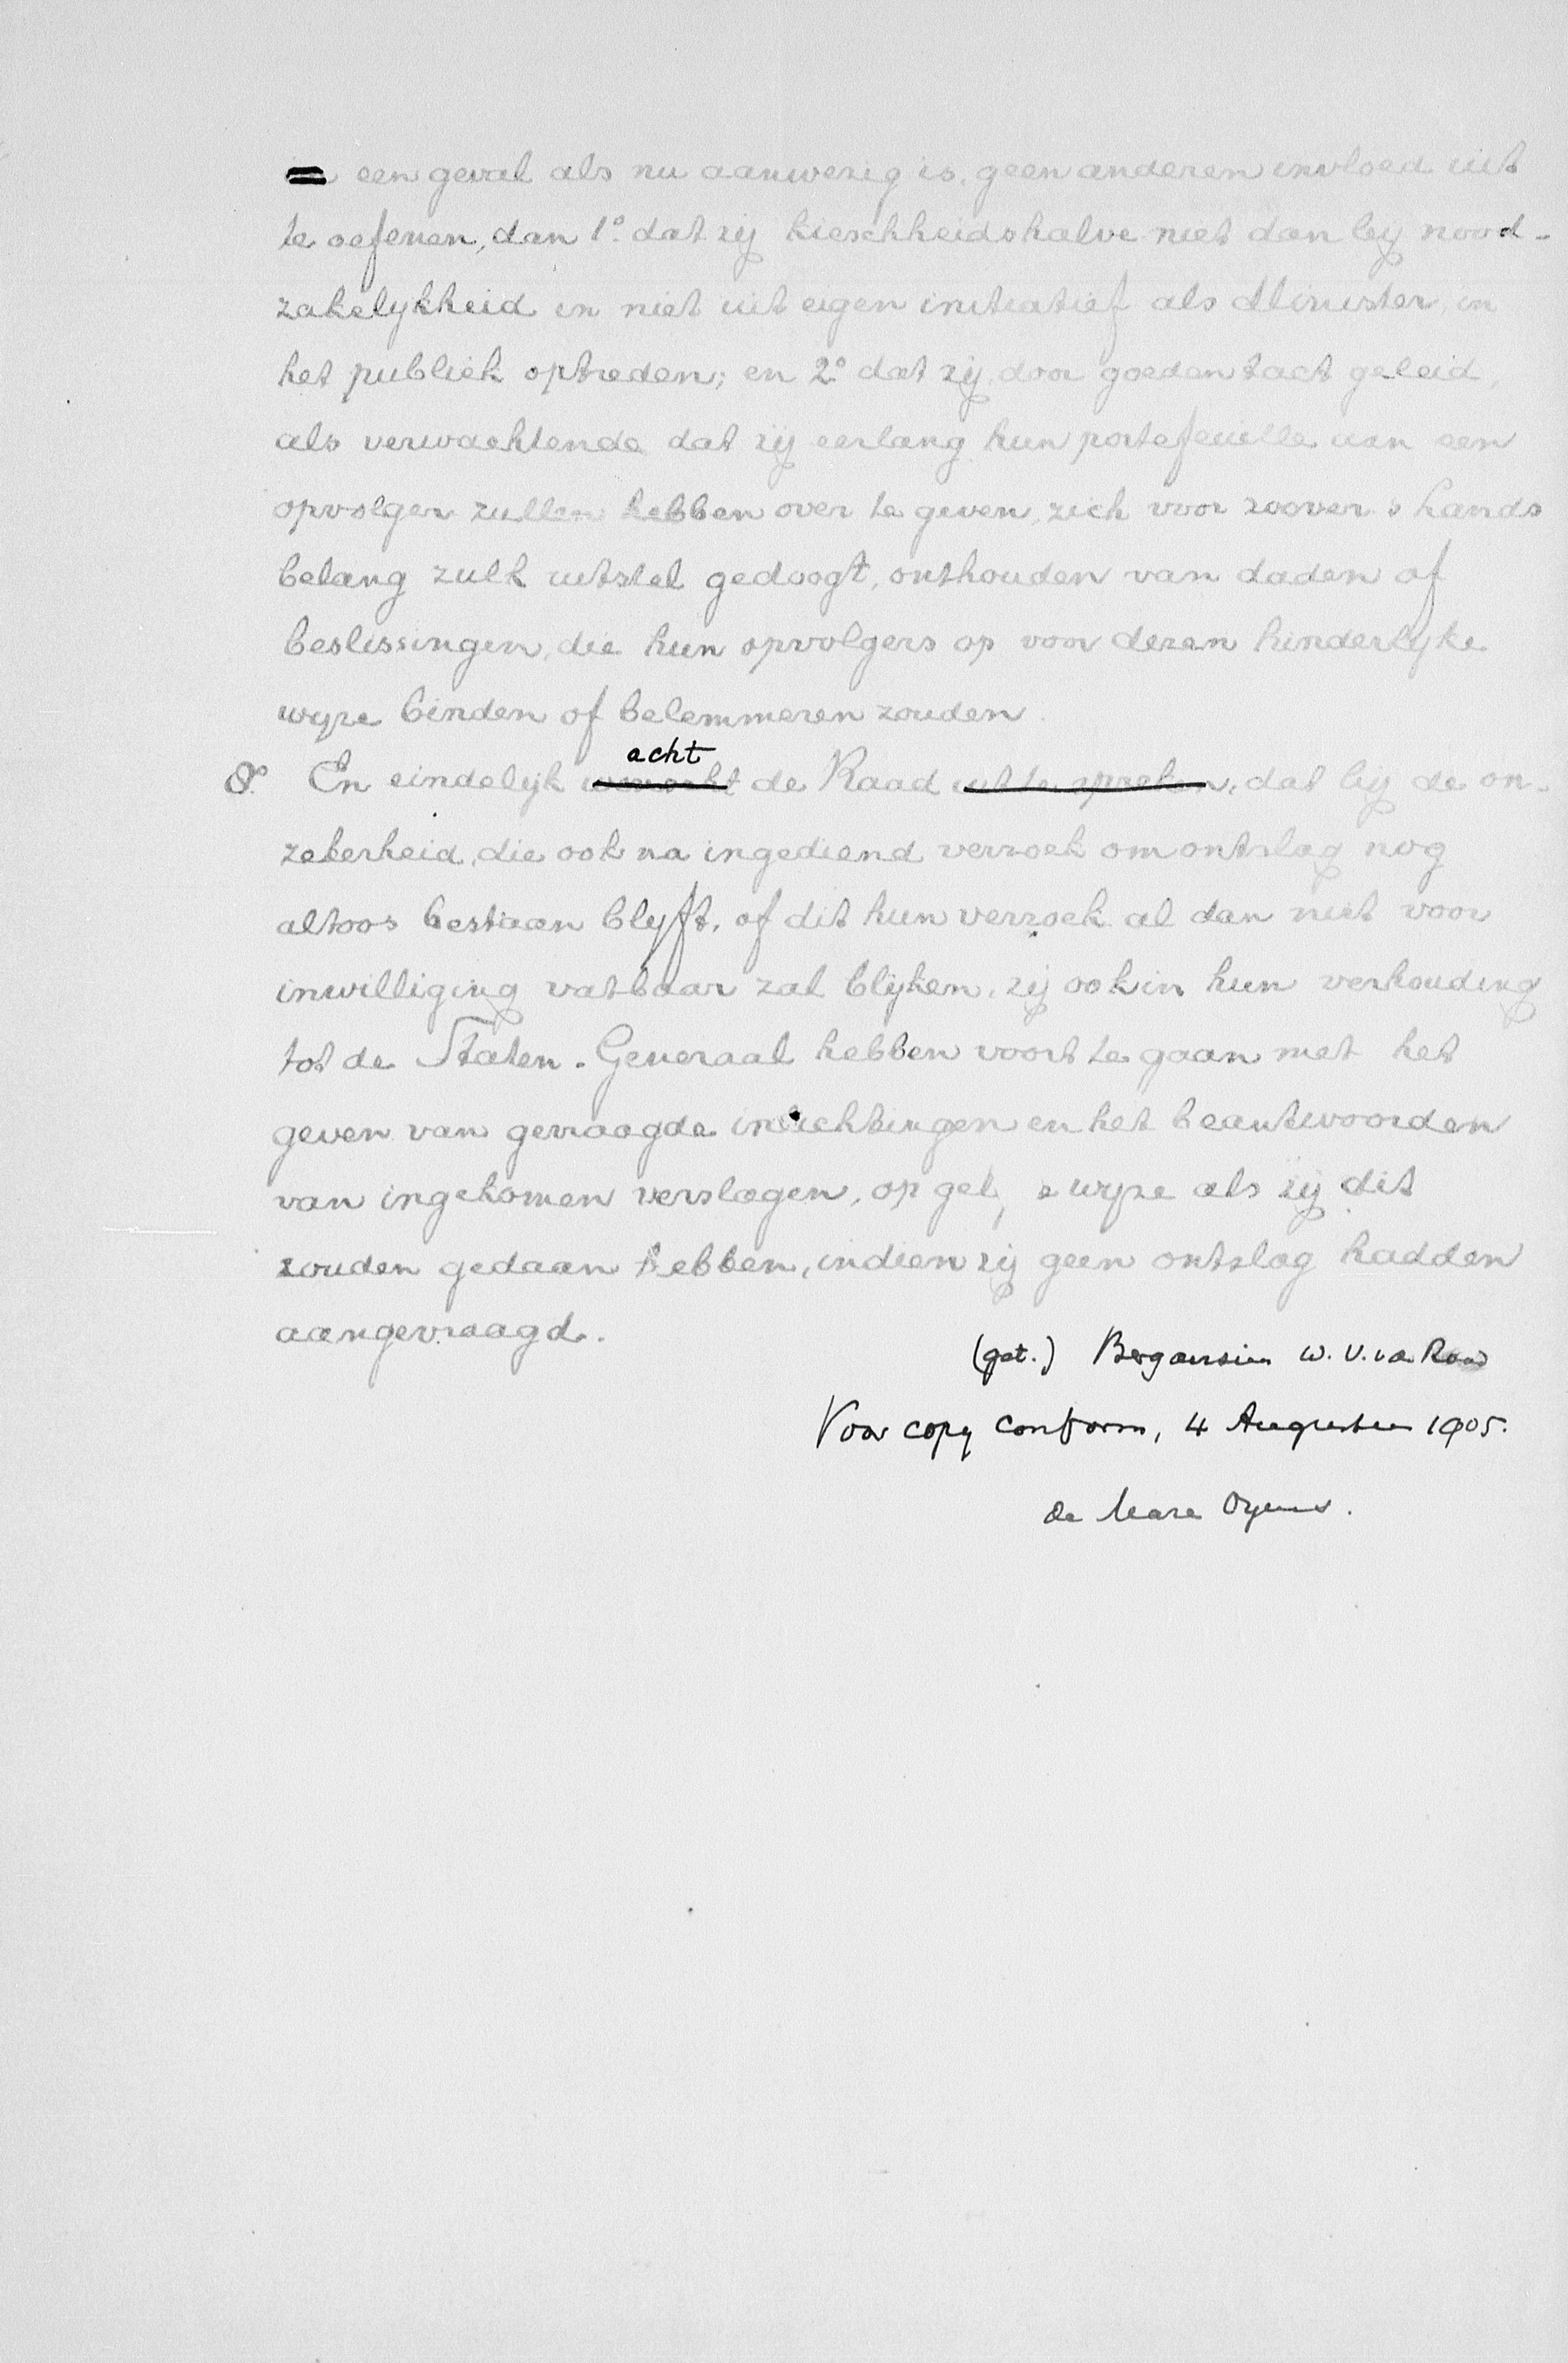 een geval als nu aanwezig is, geen anderen invloed uit
te oefenen, dan 1º. dat zij kieschheidshalve niet dan bij nood-
zakelijkheid en niet uit eigen initiatief als Minister in
het publiek optreden; en 2º dat zij, door goeden tact geleid,
als verwachtende dat zij eerlang hun portefeuille aan een
opvolger zullen hebben over te geven, zich voor zoover 's Lands
belang zulk uitstel gedoogt, onthouden van daden of
beslissingen, die hun opvolgers op voor dezen hinderlijke
wijze binden of belemmeren zouden.
acht
8º. En eindelijk de Raad uit te spreken, dat bij de on-
zekerheid, die ook na ingediend verzoek om ontslag nog
altoos bestaan blijft, of dit hun verzoek al dan niet voor
inwilliging vatbaar zal blijken, zij ook in hun verhouding
tot de Staten-Generaal hebben voort te gaan met het
geven van gevraagde inlichtingen en het beantwoorden
van ingekomen verslagen, op gel e wijze als zij dit
zouden gedaan hebben, indien zij geen ontslag hadden
aangevraagd.
(get.) Bergansius w. V. v. d. Raad
Voor copy conform, 4 Augustus 1905.
de Marez Oyens.